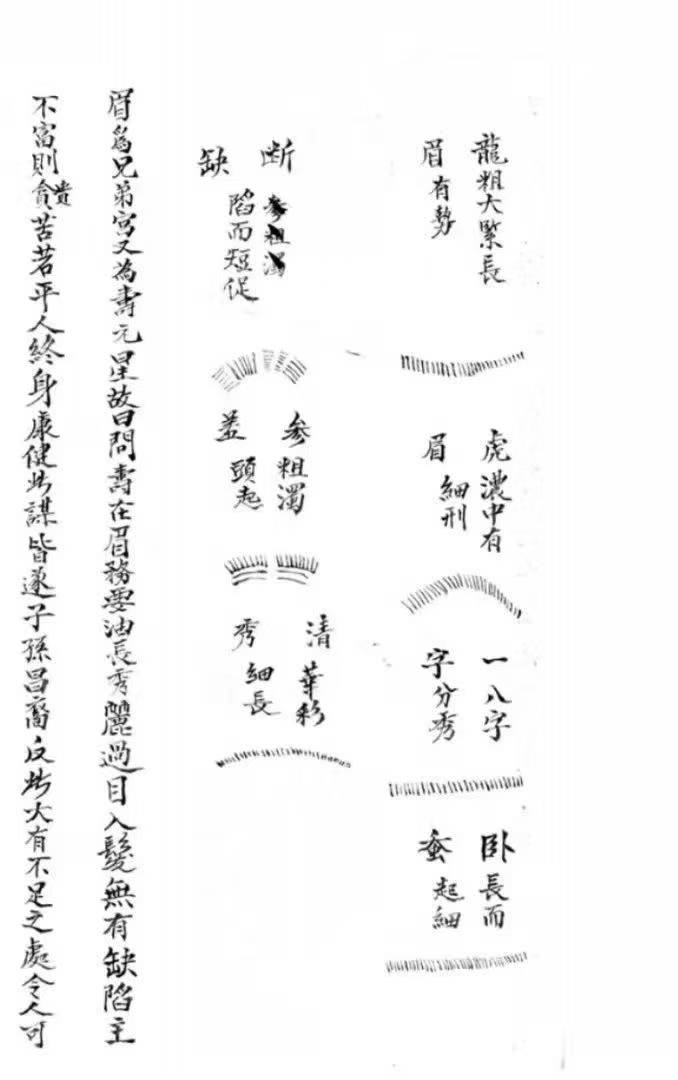 龍粗大緊長
眉有勢
虎濃中有
眉細刑
一八字
字分秀
卧長而
蚕起細
断参粗濁
缺陷而短促
参粗濁
盖頭起
清華彩
秀細長
眉爲兄弟宮又為壽元星故曰問壽在眉務要油長秀麗過目入髮無有缺陷主
不富則貪貴苦若平人終身康健此謀皆遂子孫昌裔反此大有不足之處令人可